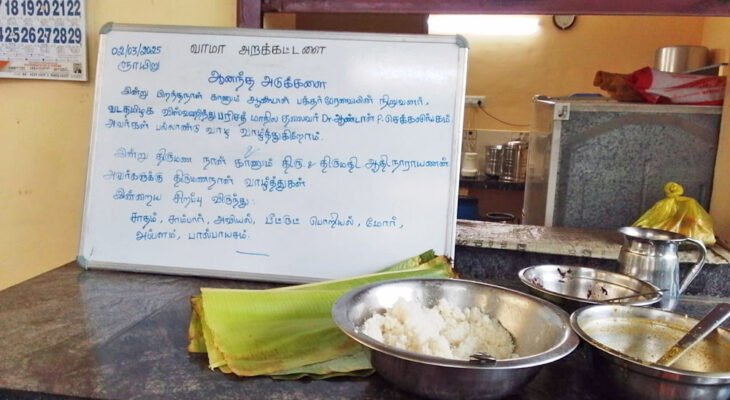 17 18 19 20 21 22
24 25 26 27 28 29
02/03/2025 வாமா அறக்கட்டளை
ஞாயிறு
ஆனந்த அடுக்களை
இன்று பிறந்தநாள் காணும் ஆண்டாள் பக்தர் பேரவையின் நிறுவனர்,
வடதமிழக விஸ்வஹிந்து பரிஷத் மாநில தலைவர் Dr. ஆண்டாள் P. சொக்கலிங்கம்
அவர்கள் பல்லாண்டு வாழ வாழ்த்துகிறோம்.
இன்று திருமண நாள் காணும் திரு & திருமதி ஆதிநாராயணன்
அவர்களுக்கு திருமணநாள் வாழ்த்துகள்
இன்றைய சிறப்பு விருந்து:
சாதம், சாம்பார், அவியல், பீட்ரூட் பொறியல், மோர்,
அப்பளம், பால்பாயசம்.